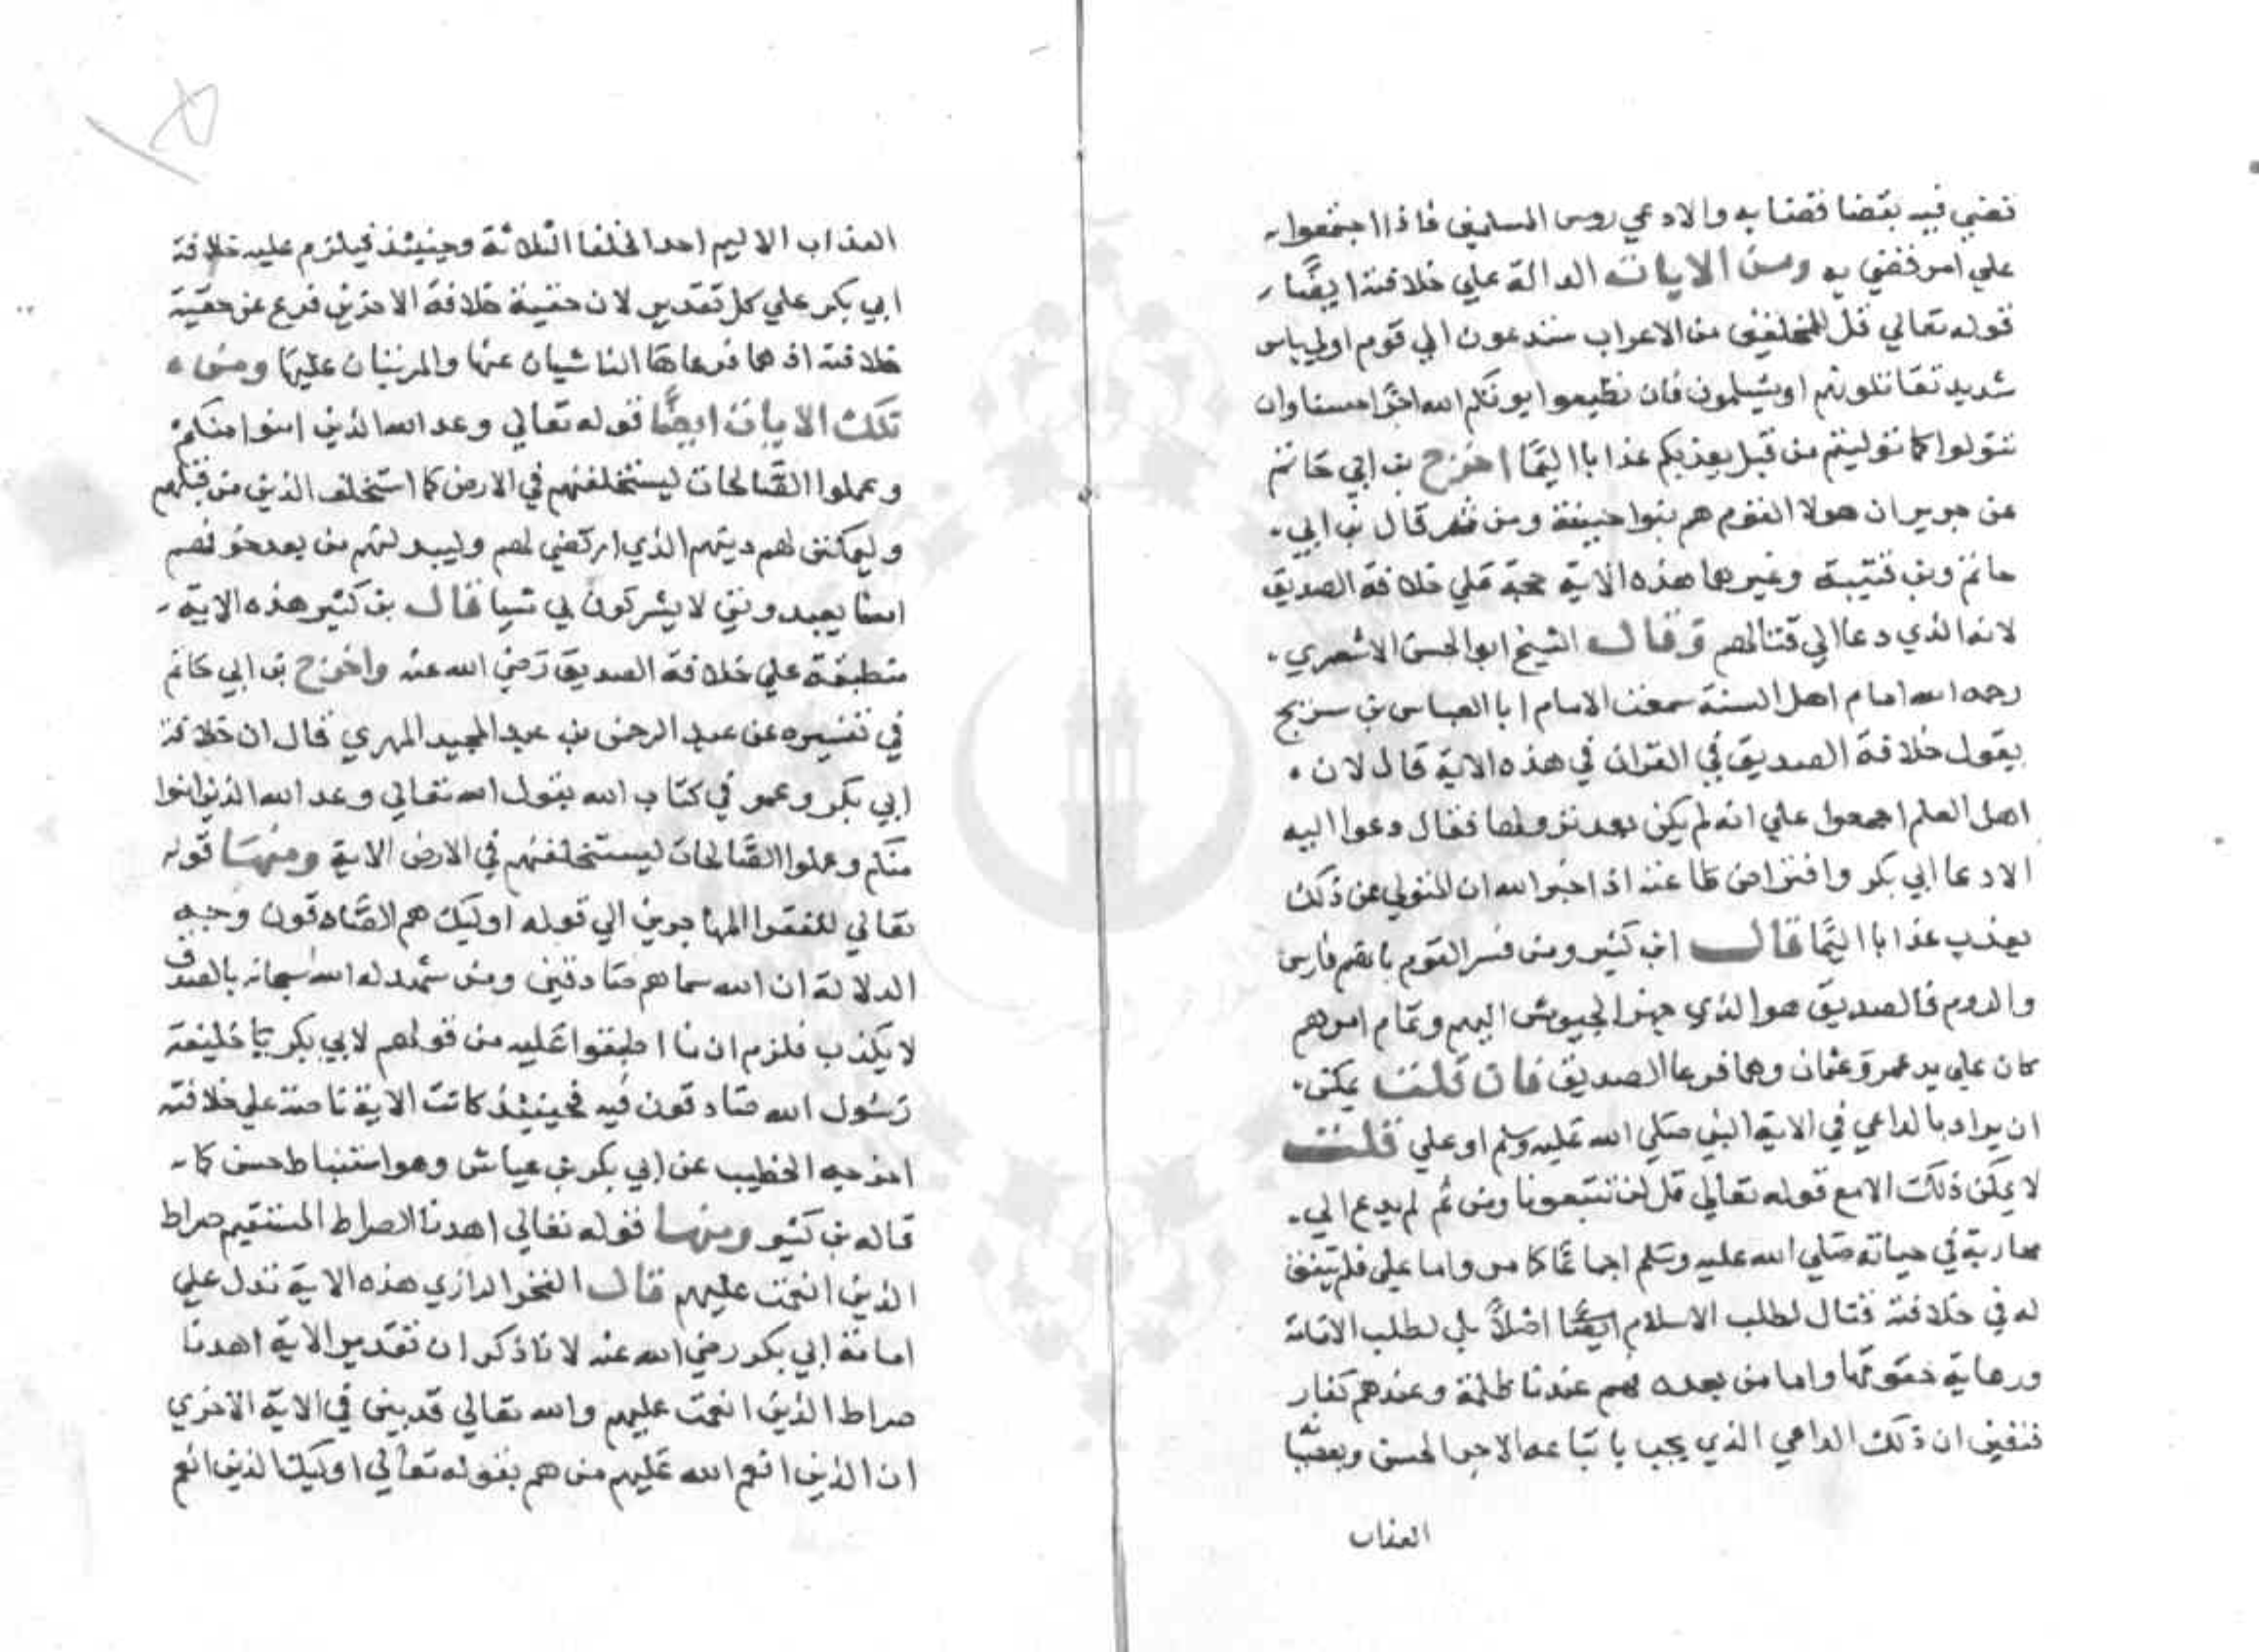 قضي فيه بقضا قضا به والا دعي روس المسلمين فاذا اجتمعوا
علي امر قضي به ومن الايات الدالة علي خلافته ايضًا
قوله تعالي قل للمخلفين من الاعراب ستدعون الي قوم اولي باس
شديد تقاتلونهم او يسلمون فان تطيعوا يوتكم الله اجرًا حسنا وان
تتولوا كما توليتم من قبل يعذبكم عذابا اليمًا اخرج بن ابي حاتم
عن جوير ان هولا القوم هم بنوا حنيفة ومن ثم قال بن ابي
حاتم وبن قتيبة وغيرهما هذه الاية حجة علي خلافة الصديق
لانه الذي دعا الي قتالهم وقال الشيخ ابو الحسن الاشعري
رحمه الله امام اهل السنة سمعت الامام ابا العباس بن سريج
يقول خلافة الصديق في القران في هذه الاية قال لان
اهل العلم اجمعوا علي انه لم يكن بعد نزولها فقال دعوا اليه
الا دعا ابي بكر وافتراض طاعته اذ اخبر الله ان المتولي عن ذلك
يعذب عذابا اليمًا قال ابن كثير ومن فسر القوم بانهم فارس
والروم فالصديق هو الذي جهز الجيوش اليهم وتمام امرهم
كان علي يد عمر وعثمان وهما فرعا الصديق فان قلت يمكن
ان يراد بالداعي في الاية النبي صلي الله عليه وسلم او علي قلت
لا يمكن ذلك الا مع قوله تعالي قل لن تتبعونا ومن ثم لم يدع الي
محاربة في حياته صلي الله عليه وسلم اجماعًا كما مر واما علي فلم يتفق
له في خلافته قتال لطلب الاسلام اصلاً بل لطلب الامامة
ورعاية حقوقها واما من بعده فهم عندنا ظلمة وعندهم كفار
فتعين ان ذلك الداعي الذي يجب باتباعه الاجر الحسن وبعصيانه
العذاب
العذاب الاليم احد الخلفا الثلاثة وحينئذ فيلزم عليه خلافة
ابي بكر علي كل تقدير لان حقية خلافة الاخرين فرع عن حقية
خلافته اذ هما فرعاها الناشيان عنها والمرتبان عليها ومن
تلك الايات ايضًا قوله تعالي وعد الله الذين امنوا منكم
وعملوا الصالحات ليستخلفنهم في الارض كما استخلف الذين من قبلهم
وليمكنن لهم دينهم الذي ارتضي لهم وليبدلنهم من بعد خوفهم
امنا يعبدونني لا يشركون بي شيا قال بن كثير هذه الاية
منطبقة علي خلافة الصديق رضي الله عنه واخرج بن ابي حاتم
في تفسيره عن عبد الرحمن بن عبد المجيد المهري قال ان خلافة
ابي بكر وعمر في كتاب الله يقول الله تعالي وعد الله الذين امنوا
منكم وعملوا الصالحات ليستخلفنهم في الارض الاية ومنها قوله
تعالي للفقرا المهاجرين الي قوله اوليك هم الصادقون وجه
الدلالة ان الله سماهم صادقين ومن شهد له الله سبحانه بالصدق
لا يكذب فلزم ان ما اطبقوا عليه من قولهم لابي بكر يا خليفة
رسول الله صادقون فيه فحينئذ كانت الاية ناصة علي خلافته
اخرجه الخطيب عن ابي بكر بن عياش وهو استنباط حسن كما
قاله بن كثير ومنها قوله تعالي اهدنا الصراط المستقيم صراط
الذين انعمت عليهم قال الفخر الرازي هذه الاية تدل علي
امامة ابي بكر رضي الله عنه لانا ذكرا ان تقدير الاية اهدنا
صراط الذين انعمت عليهم والله تعالي قد بين في الاية الاخري
ان الذين انعم الله عليهم من هم بقوله تعالي اوليك الذين انعم